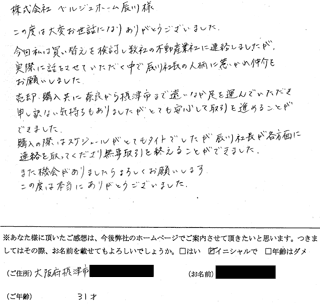 株式会社 ベルジュホーム辰川様
この度は大変お世話になりありがとうございました。
今回私は買い替えを検討し数社の不動産業社に連絡しましたが、
実際に話をさせていただく中で辰川社長の人柄に惹かれ仲介を
お願いしました。
売却・購入共に奈良から摂津市まで遠い中が足を運んでいただく
申し訳ない気持ちもありましたがとても安心して取引を進めることが
できました。
購入の際はスケジュールがとてもタイトでしたが辰川社長が各方面に
連絡を取ってくださり無事取引を終えることができました。
また機会がありましたらよろしくお願いします。
この度は本当にありがとうございました。
※あなた様に頂いたご感想は、今後弊社のホームページでご案内させて頂きたいと思います。つきま
してはその際、お名前を載せてもよろしいでしょうか。□はい ☑イニシャルで □年齢はダメ
(ご住所) 大阪府摂津市 (お名前)
(ご年齢) 31才